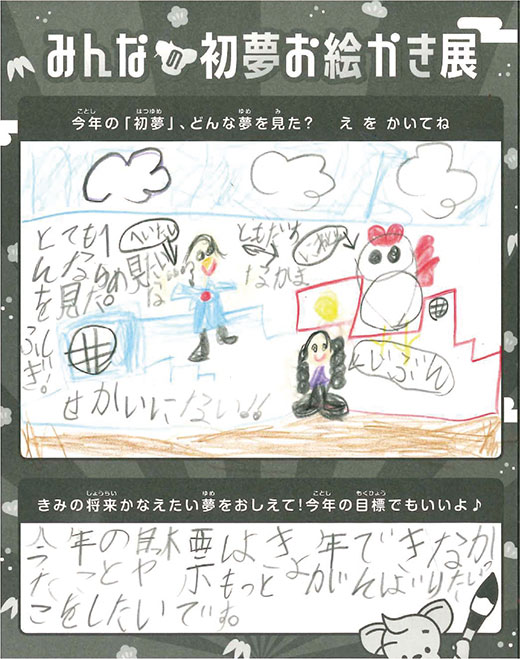 みんなの初夢お絵かき展
今年の「初夢」、どんな夢を見た? え を かいてね
とても
を見た。
ふしぎ!
へいたい
なかま
じぶん
せかいにない!!
きみの将来かなえたい夢をおしえて!今年の目標でもいいよ♪
今年の目標はきょ年できなかっ
たことや もっとがんばりたい
ことをしたいです。